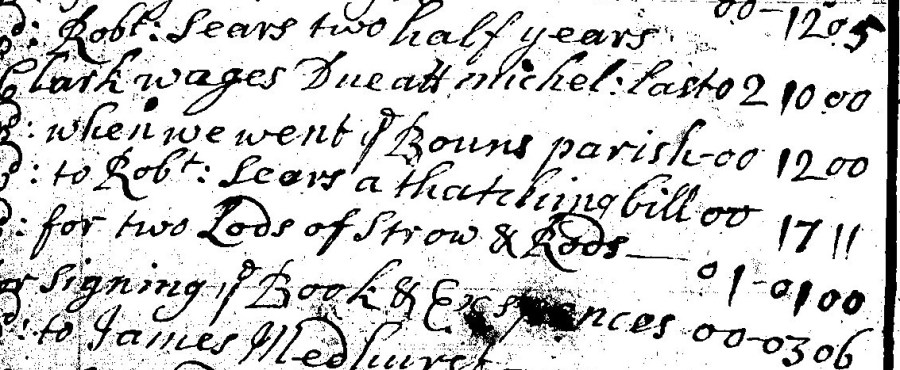 d: Robt: Sears two half years 00-12 05
Clark wages Due att michel: last 02 10 00
d: when we went ye Bouns parish-00 12 00
d: to Robt: Sears a thatching bill 00 17 11
d: for two Lods of Strow & Rods— 01-01 00
for signing ye Book & Exspences 00-03 06
d: to James Medhurst